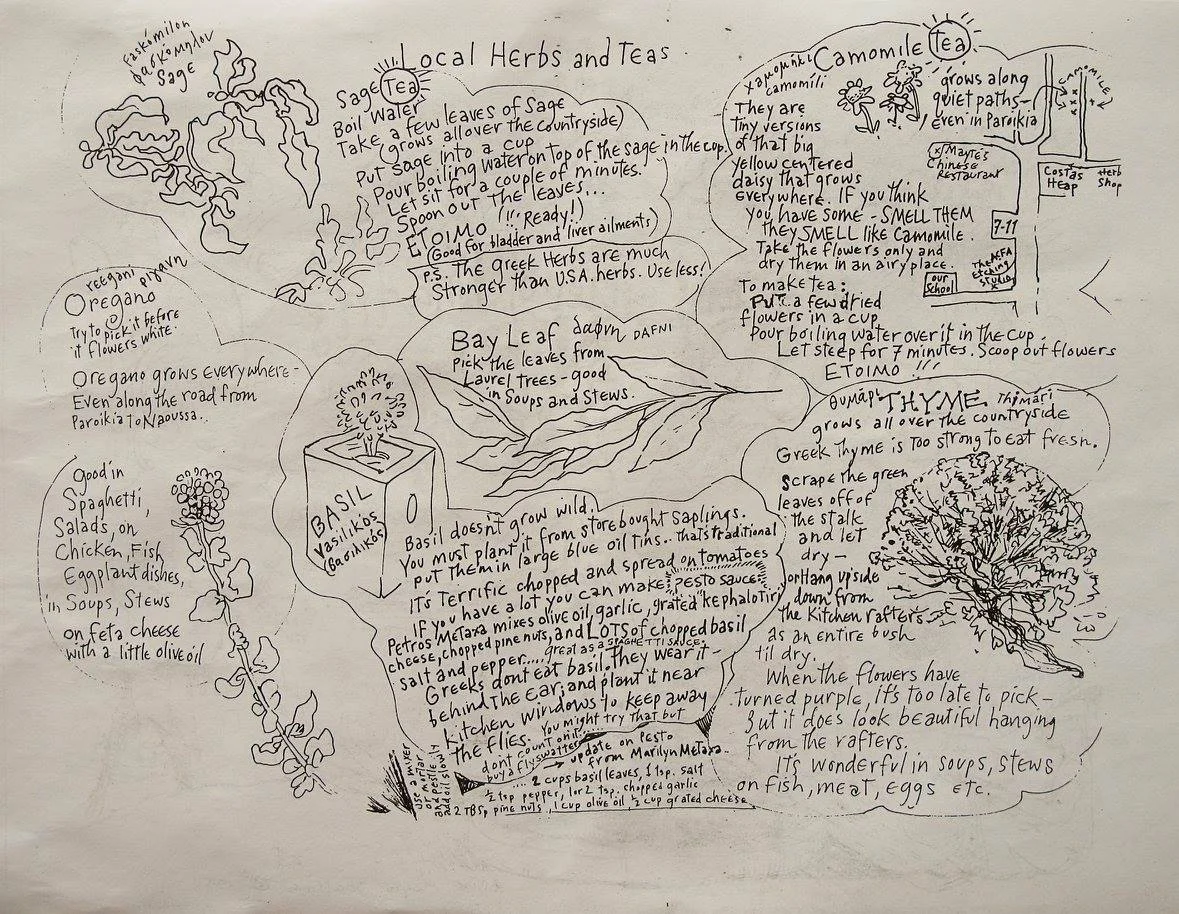 Local Herbs and Teas
Faskómilon
φασκόμηλον
Sage
Sage Tea
Boil Water
Take a few leaves of Sage
(grows all over the countryside)
Put sage into a cup
Pour boiling water on top of the sage in the cup.
Let sit for a couple of minutes.
Spoon out the leaves...
ETOIMO (!!! Ready!)
(Good for bladder and liver ailments)
P.S. The greek Herbs are much
Stronger than U.S.A. herbs. Use less!
χαμομηλι
camomili
Camomile Tea
They are
tiny versions
of that big
yellow centered
daisy that grows
everywhere. If you think
you have some - SMELL THEM
they SMELL like Camomile.
Take the flowers only and
dry them in an airy place.
To make tea:
Put... a few dried
flowers in a cup
Pour boiling water over it in the cup.
Let steep for 7 minutes. Scoop out flowers
ETOIMO !!!
grows along
quiet paths -
even in Paroikia
CAMOMILE
x) Mayte's
Chinese
Restaurant
Costas
Heap
Herb
Shop
7-11
The AEFA
Etching
Studio
our
School
reegani ρίγανη
Oregano
Try to pick it before
it flowers white.
Oregano grows everywhere -
Even along the road from
Paroikia to Naoussa..
Good in
Spaghetti,
Salads, on
Chicken, Fish
Eggplant dishes,
in Soups, Stews
on feta cheese
with a little olive oil
Bay Leaf δαφνη DAFNI
Pick the leaves from
Laurel trees - good
in Soups and Stews.
BASIL
Vasilikos
(Βασιλικός)
Basil doesn't grow wild.
You must plant it from store bought saplings.
Put them in large blue oil tins.. that's traditional
It's Terrific chopped and spread on tomatoes
If you have a lot you can make PESTO SAUCE
Petros Metaxa mixes olive oil, garlic, grated "kephalotiri"
cheese, chopped pine nuts, and LOTS of chopped basil
salt and pepper..... great as a SPAGHETTI SAUCE.
Greeks dont eat basil. They wear it -
behind the ear; and plant it near
kitchen windows to keep away
the flies. You might try that but
dont count on it...
buy a flyswatter
→ update on Pesto
from Marilyn Metaxa..
.... 2 cups basil leaves, 1 tsp. salt
½ tsp pepper, 1 or 2 tsp. chopped garlic
2 TBSp pine nuts, 1 cup olive oil ½ cup grated cheese
use a mixer
or mortar
and pestle
add oil slowly
θυμάρι THYME Thimári
grows all over the countryside
Greek Thyme is too strong to eat fresh.
Scrape the green
leaves off of
the stalk
and let
dry -
or Hang upside
down from
the kitchen rafters
as an entire bush
til dry.
When the flowers have
turned purple, it's too late to pick -
But it does look beautiful hanging
from the rafters.
It's wonderful in soups, stews
on fish, meat, eggs etc.